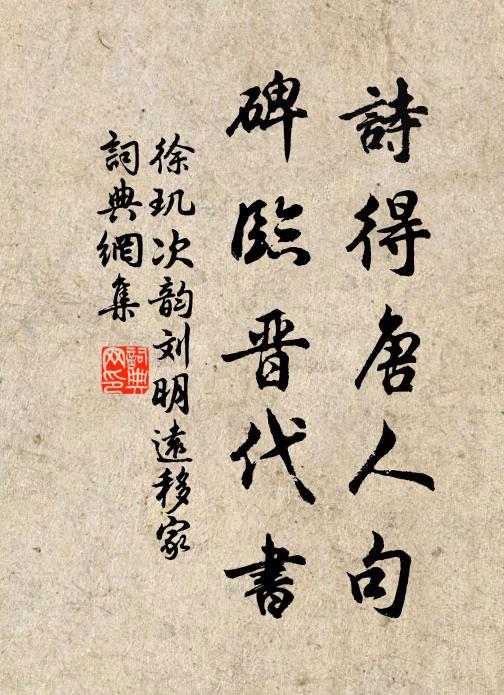 詩得唐人句
碑臨晋代書
徐玑次韵刘明遠移家
詞典網集
詞典網印